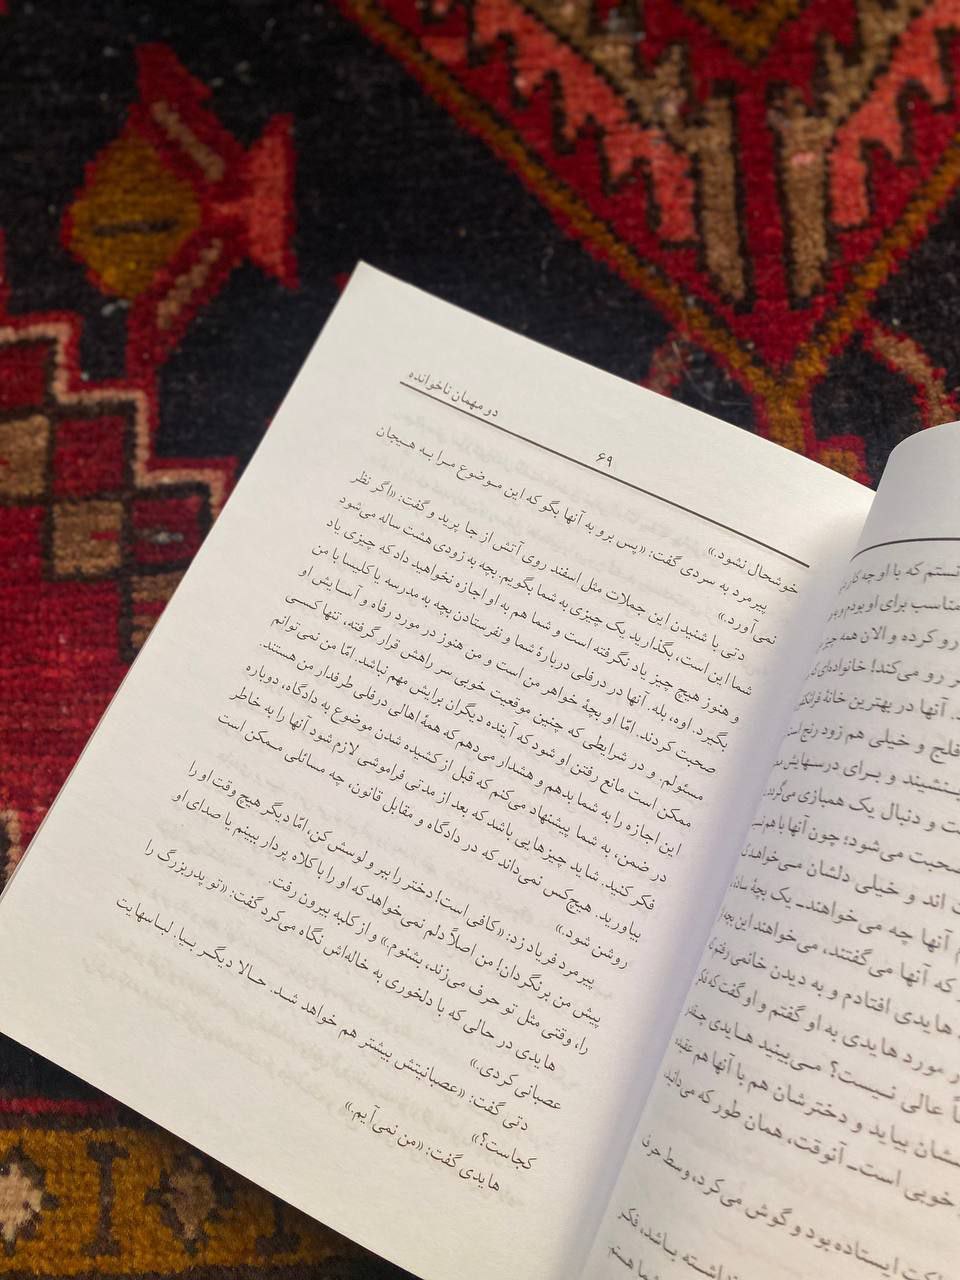 نستم که با او چه کار
مناسب برای او بودم و
رو کرده و الان همه چیز
رو می‌کند! خانواده‌ای که
آنها در بهترین خانهٔ
فلج و خیلی هم زود رنج است
بنشیند و برای درسهایش
ت و دنبال یک همبازی می‌گردد
صحبت می‌شود؛ چون آنها با هم
ت اند و خیلی دلشان می‌خواهد
آنها چه می‌خواهند- یک بچهٔ ساده
که آنها می‌گفتند، می‌خواهند این بچه
هایدی افتادم و به دیدن خانمی رفتم
ر مورد هایدی به او گفتم و او گفت که فکر
عالی نیست؟ می‌بینید هایدی چقدر
شان بیاید و دخترشان هم با آنها هم عقیده
خوبی است- آنوقت، همان طور که می‌دانید
ایستاده بود و گوش می‌کرد، وسط حرف
داشته باشد، فکر
هستم
دو مهمان ناخوانده
۶۹
خوشحال نشود.»
پیرمرد به سردی گفت: «پس برو به آنها بگو که این موضوع مرا به هیجان
نمی‌آورد.»
دتی با شنیدن این جملات مثل اسفند روی آتش از جا پرید و گفت: «اگر نظر
شما این است، بگذارید یک چیزی به شما بگویم. بچه به زودی هشت ساله می‌شود
و هنوز هیچ چیز یاد نگرفته است و شما هم به او اجازه نخواهید داد که چیزی یاد
بگیرد. اوه، بله. آنها در درفلی دربارهٔ شما و نفرستادن بچه به مدرسه یا کلیسا با من
صحبت کردند. امّا او بچهٔ خواهر من است و من هنوز در مورد رفاه و آسایش او
مسئولم. و در شرایطی که چنین موقعیت خوبی سر راهش قرار گرفته، تنها کسی
ممکن است مانع رفتن او شود که آینده دیگران برایش مهم نباشد. امّا من نمی‌توانم
این اجازه را به شما بدهم و هشدار می‌دهم که همهٔ اهالی درفلی طرفدار من هستند.
در ضمن، به شما پیشنهاد می‌کنم که قبل از کشیده شدن موضوع به دادگاه، دوباره
فکر کنید. شاید چیزهایی باشد که بعد از مدتی فراموشی لازم شود آنها را به خاطر
بیاورید. هیچ‌کس نمی‌داند که در دادگاه و مقابل قانون، چه مسائلی ممکن است
روشن شود.»
پیرمرد فریاد زد: «کافی است! دختر را ببر و لوسش کن، امّا دیگر هیچ وقت او را
پیش من برنگردان! من اصلاً دلم نمی‌خواهد که او را با کلاه پردار ببینم یا صدای او
را، وقتی مثل تو حرف می‌زند، بشنوم.» و از کلبه بیرون رفت.
هایدی در حالی که با دلخوری به خاله‌اش نگاه می‌کرد گفت: «تو پدربزرگ را
عصبانی کردی.»
دتی گفت: «عصبانیتش بیشتر هم خواهد شد. حالا دیگر بیا. لباسهایت
کجاست؟»
هایدی گفت: «من نمی‌آیم.»